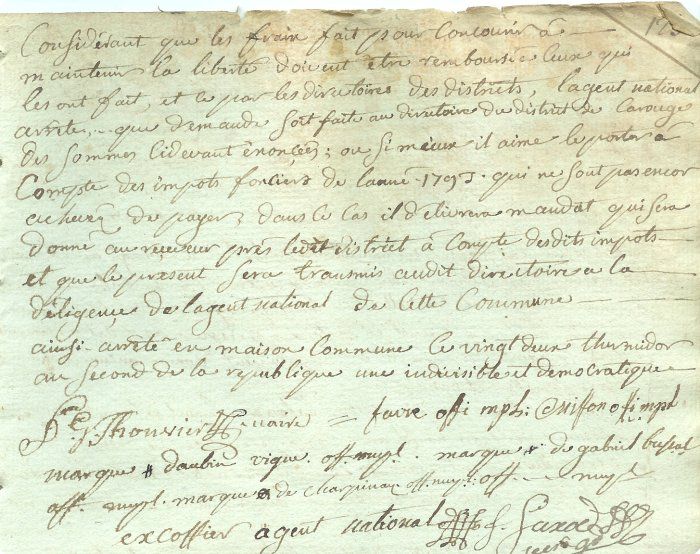 Considérant que les fraix fait pour Concourir a
maintenir la liberté doivent être remboursés a Ceux qui
les ont fait, et ce par les directoires des districts, l'agent national
arrête, que demande soit faite au directoire du district de Carouge
des sommes cidevant énoncées; ou si mieux il aime le porter à
Compte des impots fonciers de l'année 1793. qui ne sont pas encor
achevés de payer; dans ce Cas il délivrera mandat qui sera
donné au receveur près ledit district à Compte desdits impots
et que le present sera transmis audit directoire a la
déligence de l'agent national de Cette Commune
ainsi arrêté en maison Commune Ce vingt deux thermidor
an second de la republique une indivisible et democratique
Thouvier maire favre offi mpl:
marque d'aubin vigne off. mupl. marque de gabriel
off. mupl. marque de off. mupl.
excoffier agent national